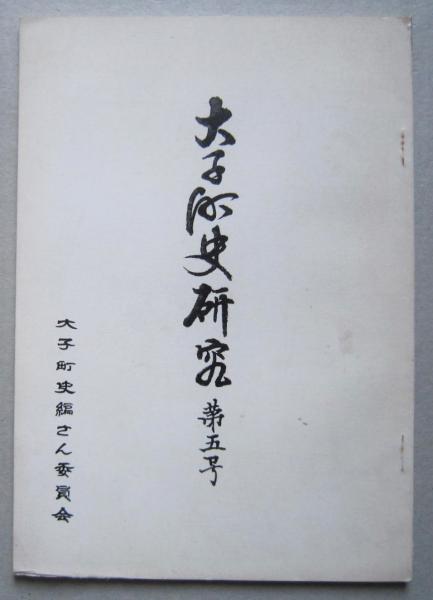 大子町史研究 第五号
大子町史編さん委員会